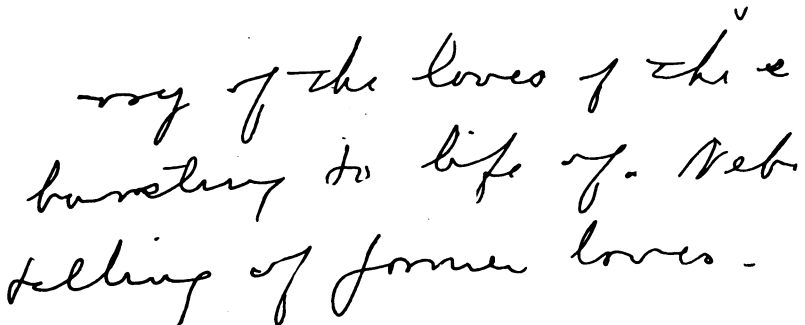 of the loves of the
bursting to life of. Neb
telling of former loves.